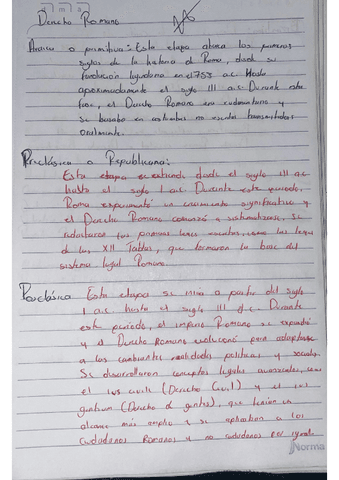 Derecho Romano
Arcaica o primitiva: Esta etapa abarca los primeros
siglos de la historia de Roma, desde su
fundación legendaria en el 753 a.c. Hasta
aproximadamente el siglo III a.c. Durante esta
fase, el Derecho Romano era rudimentario y
se basaba en costumbres no escritas transmitidas
oralmente.
Preclásica o Republicana:
Esta etapa se extiende desde el siglo III a.c
hasta el siglo I a.c. Durante este periodo,
Roma experimentó un crecimiento significativo y
el Derecho Romano comenzó a sistematizarse, se
redactaron las primeras leyes escritas, como las leyes
de las XII Tablas, que formaron la base del
sistema legal Romano.
Posclásica Esta etapa se inicia a partir del siglo
I a.c. hasta el siglo III d.c. Durante
este periodo, el imperio Romano se expandió
y el Derecho Romano evolucionó para adaptarse
a las cambiantes realidades politicas y sociales
Se desarrollaron conceptos legales avanzados, como
el ius civile (Derecho Civil) y el ius
gentium (Derecho de gentes), que tenían un
alcance más amplio y se aplicaban a los
ciudadanos Romanos y no ciudadanos por igual.
Norma